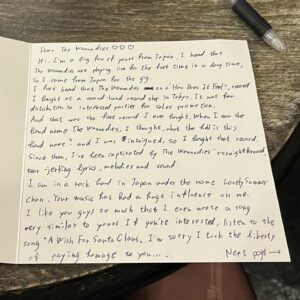 Dear The Wannadies ♡♡♡
Hi. I'm a big fan of yours from Japan. I heard that
The Wannadies are playing live for the first time in a long time,
So I came from Japan for the gig.
I first heard that The Wannadies on a "How Does It Feel?" record
I bought at a second-hand record shop in Tokyo. It was for
distribution to interested parties for sales promotion.
And that was the first record I ever bought. When I saw the
band name The Wannadies, I thought, what the hell is this
band name? and I was intrigued. so I bought that record.
Since then, I've been captivated by The Wannadies' straightforward,
tear-jerking lyrics, melodies and sound.
I am in a rock band in Japan under the name Lovely Summer
Chan. Your music has had a huge influence on me.
I like you guys so much that I even wrote a song
very similar to yours. If you're interested, listen to the
song "A Wish For Santa Claus, I'm sorry I took the liberty
of paying homage to you...
Next page→